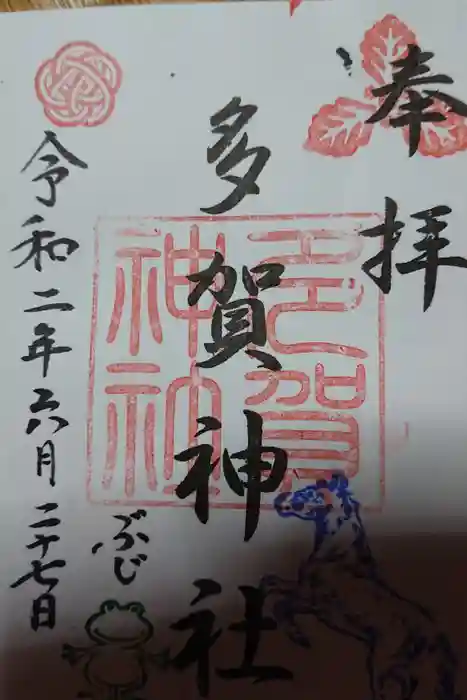 奉拝
多賀神社
多賀
神社
令和二年六月二十七日
ぶじ